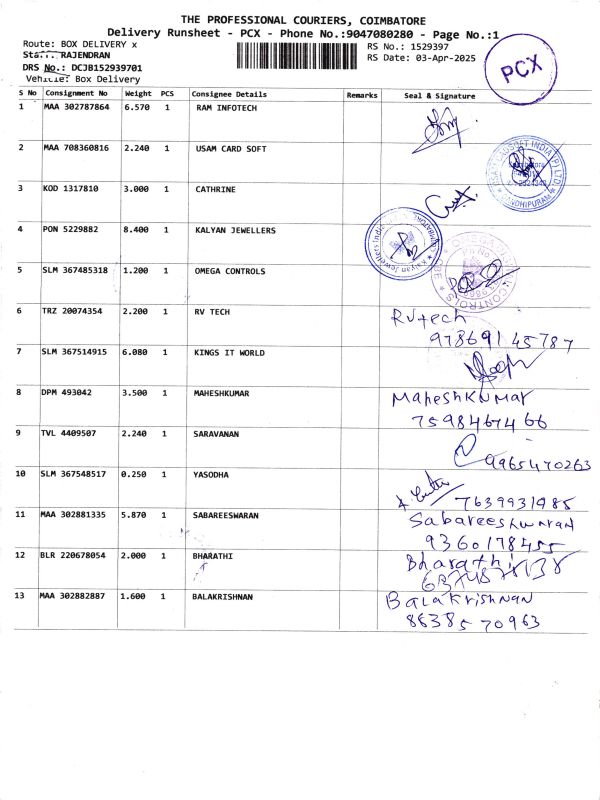 THE PROFESSIONAL COURIERS, COIMBATORE
Delivery Runsheet - PCX - Phone No.:9047080280 - Page No.:1
Route: BOX DELIVERY x
Staff: RAJENDRAN
DRS No.: DCJB152939701
Vehicle: Box Delivery
RS No.: 1529397
RS Date: 03-Apr-2025
PCX
S No Consignment No Weight PCS Consignee Details Remarks Seal & Signature
1 MAA 302787864 6.570 1 RAM INFOTECH
2 MAA 708360816 2.240 1 USAM CARD SOFT
3 KOD 1317810 3.000 1 CATHRINE
4 PON 5229882 8.400 1 KALYAN JEWELLERS
5 SLM 367485318 1.200 1 OMEGA CONTROLS
6 TRZ 20074354 2.200 1 RV TECH
RVtech
978691 45787
7 SLM 367514915 6.080 1 KINGS IT WORLD
8 DPM 493042 3.500 1 MAHESHKUMAR
Maheshkumar
7598467466
9 TVL 4409507 2.240 1 SARAVANAN
9965470263
10 SLM 367548517 0.250 1 YASODHA
7639931985
11 MAA 302881335 5.870 1 SABAREESWARAN
Sabareeshwaran
9360178455
12 BLR 220678054 2.000 1 BHARATHI
Bharathi
13 MAA 302882887 1.600 1 BALAKRISHNAN
Balakrishnan
86385 70963